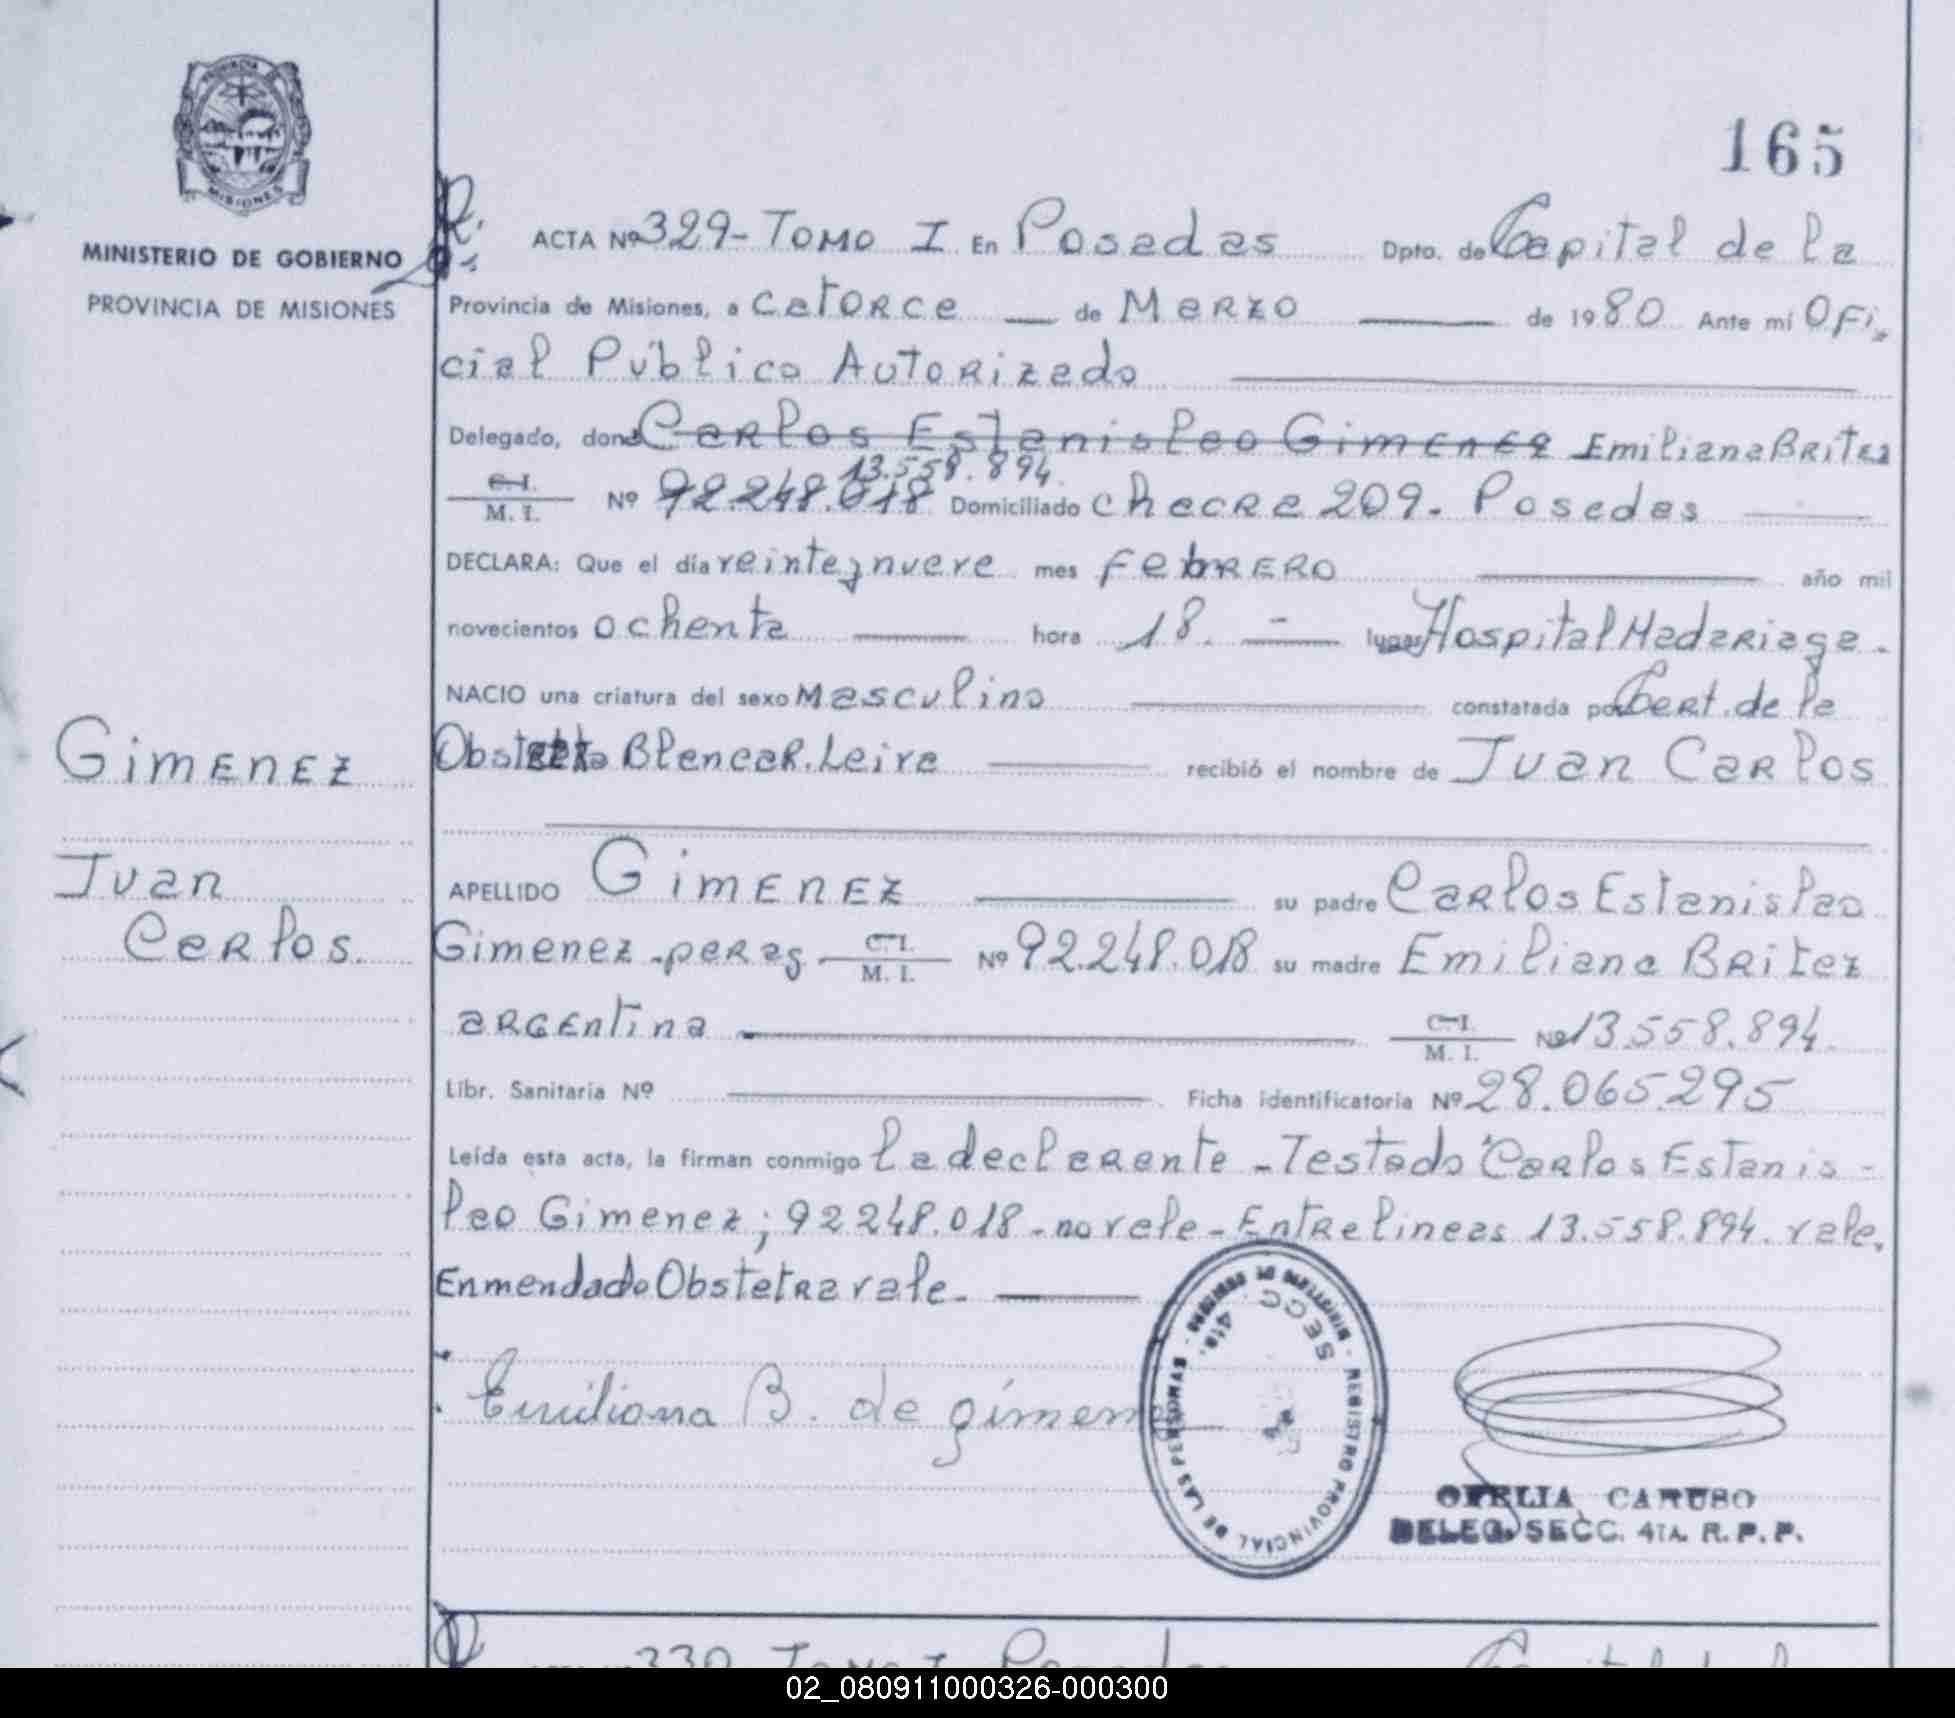 165
PROVINCIA DE
MISIONES
MINISTERIO DE GOBIERNO
PROVINCIA DE MISIONES
ACTA Nº 329- Tomo I En Posadas Dpto. de Capital de la
Provincia de Misiones, a catorce de Marzo de 1980 Ante mi Ofi-
cial Público Autorizado
Delegado, don Carlos Estanislao Gimenez Emiliana Britez
13.558.894.
C. I. / M. I. Nº 92.248.018 Domiciliado Chacra 209. Posadas
DECLARA: Que el día veinteynueve mes Febrero año mil
novecientos ochenta hora 18. lugar Hospital Madariaga.
NACIO una criatura del sexo Masculino constatada por Cert. de la
Obstetra Blanca R. Leiva recibió el nombre de Juan Carlos
Gimenez
Juan
Carlos.
APELLIDO Gimenez su padre Carlos Estanislao
Gimenez - parag C. I. / M. I. Nº 92.248.018 su madre Emiliana Britez
argentina C. I. / M. I. Nº 13.558.894.
Libr. Sanitaria Nº Ficha identificatoria Nº 28.065.295
Leída esta acta, la firman conmigo la declarante - Testado "Carlos Estanis-
lao Gimenez; 92248.018 - no vale - Entrelineas 13.558.894. vale.
Enmendado Obstetra vale.
Emiliana B. de gimenez
REGISTRO PROVINCIAL DE LAS PERSONAS - MINISTERIO DE GOBIERNO
SECC 4ta.
OFELIA CARUSO
DELEG. SECC. 4TA. R. P. P.
330 Tomo I Posadas Capital de la
02_080911000326-000300